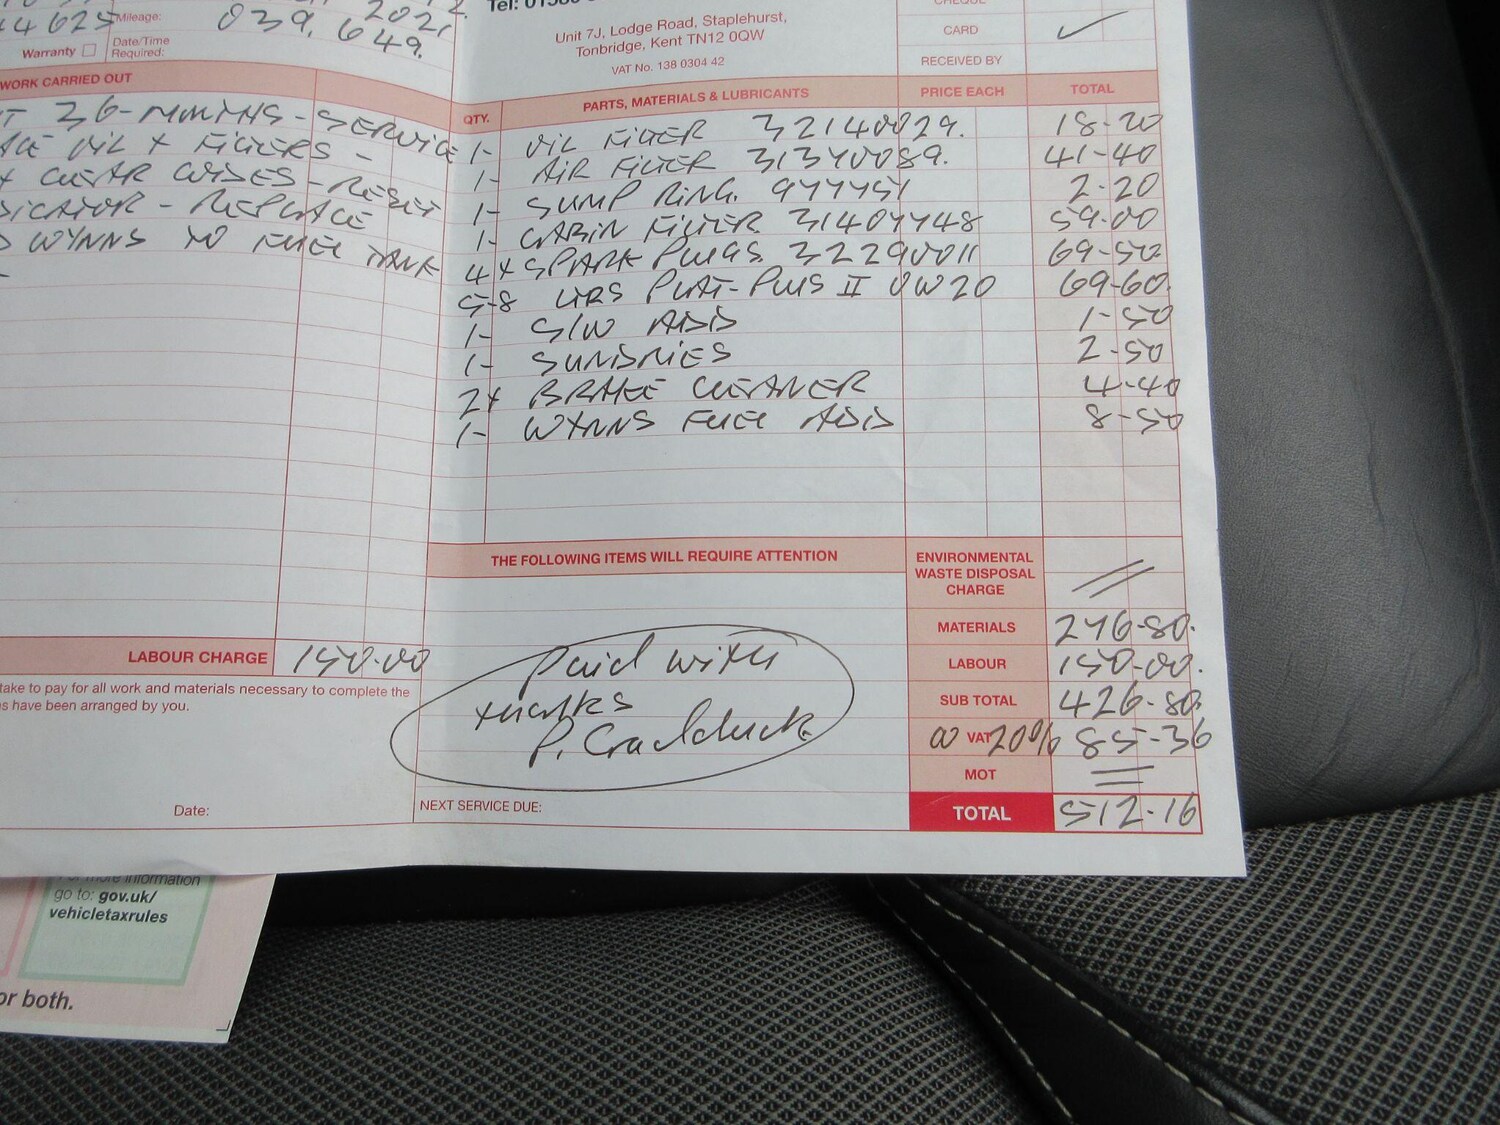 2021
Mileage: 039,649.
Warranty Date/Time Required:
Tel:
Unit 7J, Lodge Road, Staplehurst,
Tonbridge, Kent TN12 0QW
VAT No. 138 0304 42
CARD ✓
RECEIVED BY
WORK CARRIED OUT
36-MONTHS-SERVICE
OIL + FILTERS -
- RESET
- REPLACE
WYNNS TO FUEL TANK
QTY. PARTS, MATERIALS & LUBRICANTS PRICE EACH TOTAL
1- OIL FILTER 32140029. 18-20
1- AIR FILTER 31370089. 41-40
1- SUMP RING. 977751 2-20
1- CABIN FILTER 31407748 59-00
4x SPARK PLUGS. 32290011 69-50
5-8 LTRS PLAT-PLUS II 0W20 69-60.
1- S/W ADD 1-50
1- SUNDRIES 2-50
2x BRAKE CLEANER 4-40
1- WYNNS FUEL ADD 8-50
THE FOLLOWING ITEMS WILL REQUIRE ATTENTION
ENVIRONMENTAL
WASTE DISPOSAL
CHARGE
MATERIALS 276-80.
LABOUR CHARGE 150.00
LABOUR 150-00.
take to pay for all work and materials necessary to complete the
s have been arranged by you.
Paid with
thanks
P. Cradduck
SUB TOTAL 426-80.
@ VAT 20% 85-36
MOT
Date:
NEXT SERVICE DUE:
TOTAL 512-16
For more information
go to: gov.uk/
vehicletaxrules
or both.